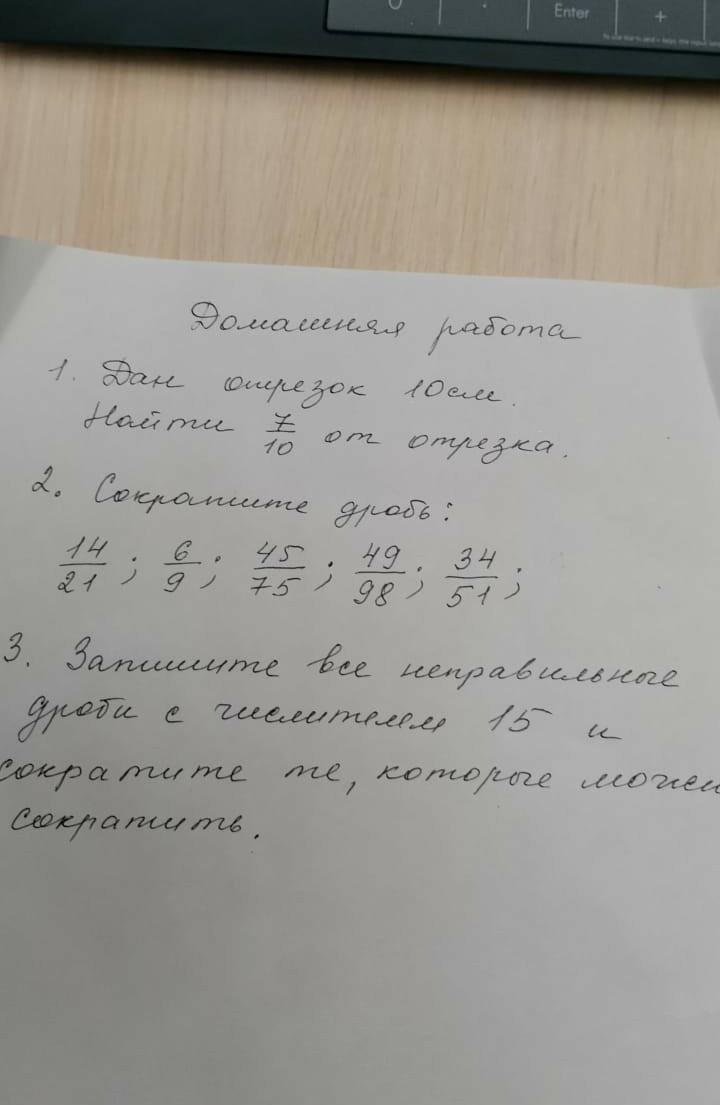 Enter
+
Домашняя работа
1. Дан отрезок 10см.
Найти 7/10 от отрезка.
2. Сократите дробь:
14/21; 6/9; 45/75; 49/98; 34/51;
3. Запишите все неправильные
дроби с числителем 15 и
сократите те, которые можем
сократить.